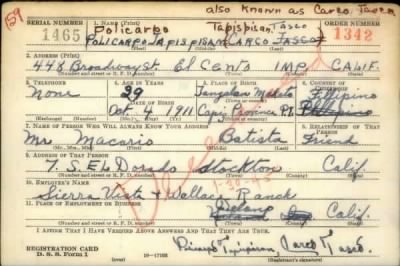 59
also known as Careo Tasco
SERIAL NUMBER 1. NAME (Print) ORDER NUMBER
Policarpo Tapispisan Tasco
1465 POLICARPO TAPISPISAN CARGO TASCO 1342
(First) (Middle) (Last)
2. ADDRESS (Print)
448 Broadway st. El Cento IMP. CALIF.
(Number and street or R. F. D. number) (Town) (County) (State)
3. TELEPHONE 4. AGE IN YEARS 5. PLACE OF BIRTH 6. COUNTRY OF CITIZENSHIP
None 29 Tangalan Makato Filipino
DATE OF BIRTH
Oct. 4 1911 Capiz Province P.I. Philipino
(Exchange) (Number) (Mo.) (Day) (Yr.) (State or country)
7. NAME OF PERSON WHO WILL ALWAYS KNOW YOUR ADDRESS 8. RELATIONSHIP OF THAT PERSON
Mr Macario Batista Friend
(Mr., Mrs., Miss) (First) (Middle) (Last)
9. ADDRESS OF THAT PERSON
7. S. EL Dorado Stockton Calif.
(Number and street or R. F. D. number) (Town) (County) (State)
10. EMPLOYER'S NAME
1-30-45
Sierra Vista & Wallace Ranch
11. PLACE OF EMPLOYMENT OR BUSINESS
Calif.
(Number and street or R. F. D. number) (Town) (County) (State)
I AFFIRM THAT I HAVE VERIFIED ABOVE ANSWERS AND THAT THEY ARE TRUE.
REGISTRATION CARD
D. S. S. Form 1 16-17105